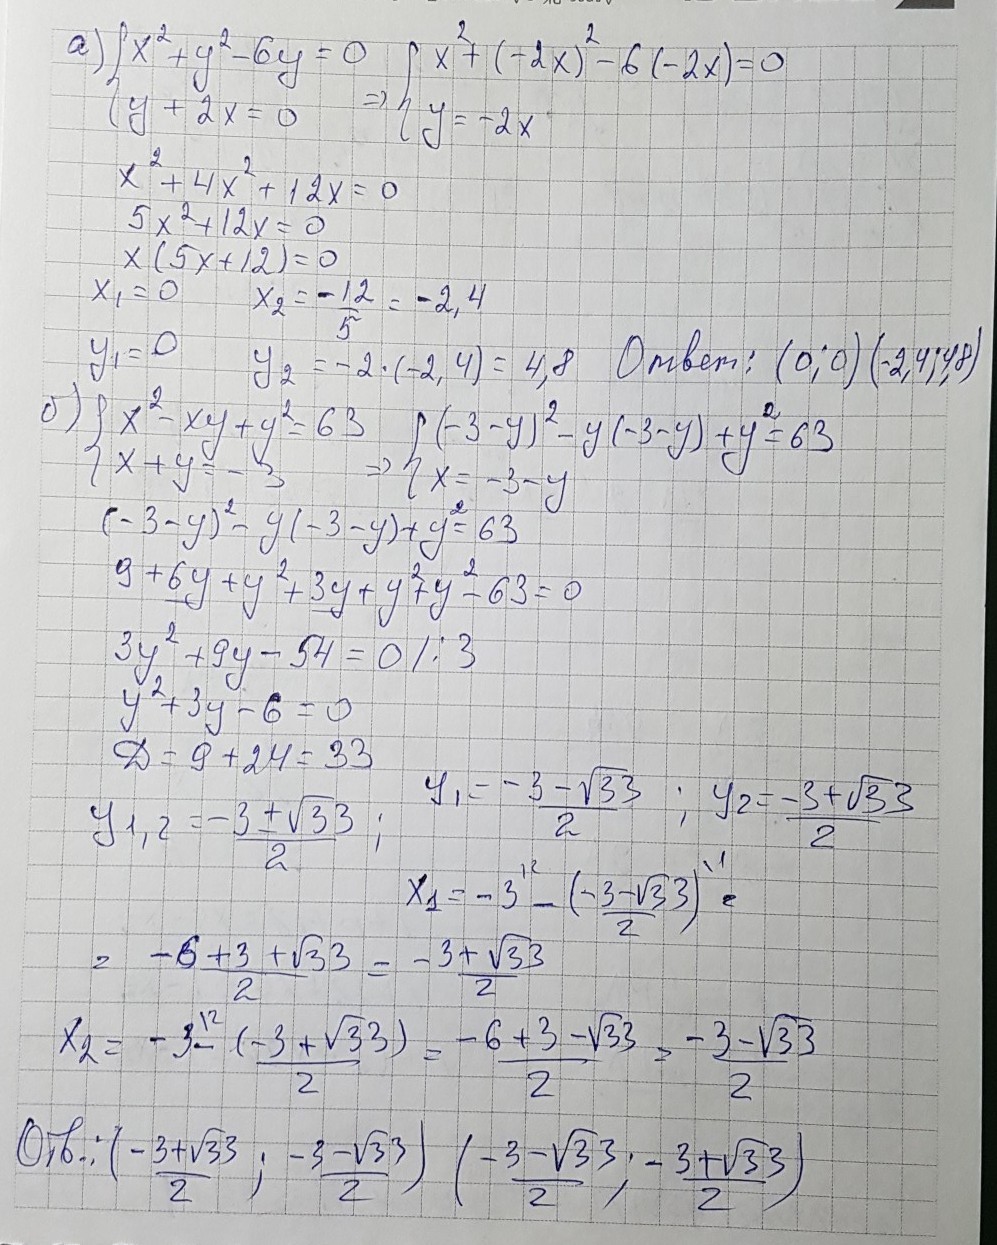 а) { x² + y² - 6y = 0 { x² + (-2x)² - 6(-2x) = 0
{ y + 2x = 0 => { y = -2x
x² + 4x² + 12x = 0
5x² + 12x = 0
x(5x+12) = 0
x₁ = 0 x₂ = -12/5 = -2,4
y₁ = 0 y₂ = -2·(-2,4) = 4,8 Ответ: (0;0) (-2,4;4,8)
б) { x² - xy + y² = 63 { (-3-y)² - y(-3-y) + y² = 63
{ x + y = -3 => { x = -3-y
(-3-y)² - y(-3-y) + y² = 63
9 + 6y + y² + 3y + y² + y² - 63 = 0
3y² + 9y - 54 = 0 /:3
y² + 3y - 6 = 0
D = 9 + 24 = 33
y₁,₂ = (-3±√33)/2 ; y₁ = (-3-√33)/2 ; y₂ = (-3+√33)/2
x₁ = -3\² - (-3-√33)/2 \¹ =
= (-6+3+√33)/2 = (-3+√33)/2
x₂ = -3\² - (-3+√33)/2 = (-6+3-√33)/2 = (-3-√33)/2
Отв.: ((-3+√33)/2 ; (-3-√33)/2) ((-3-√33)/2 ; (-3+√33)/2)